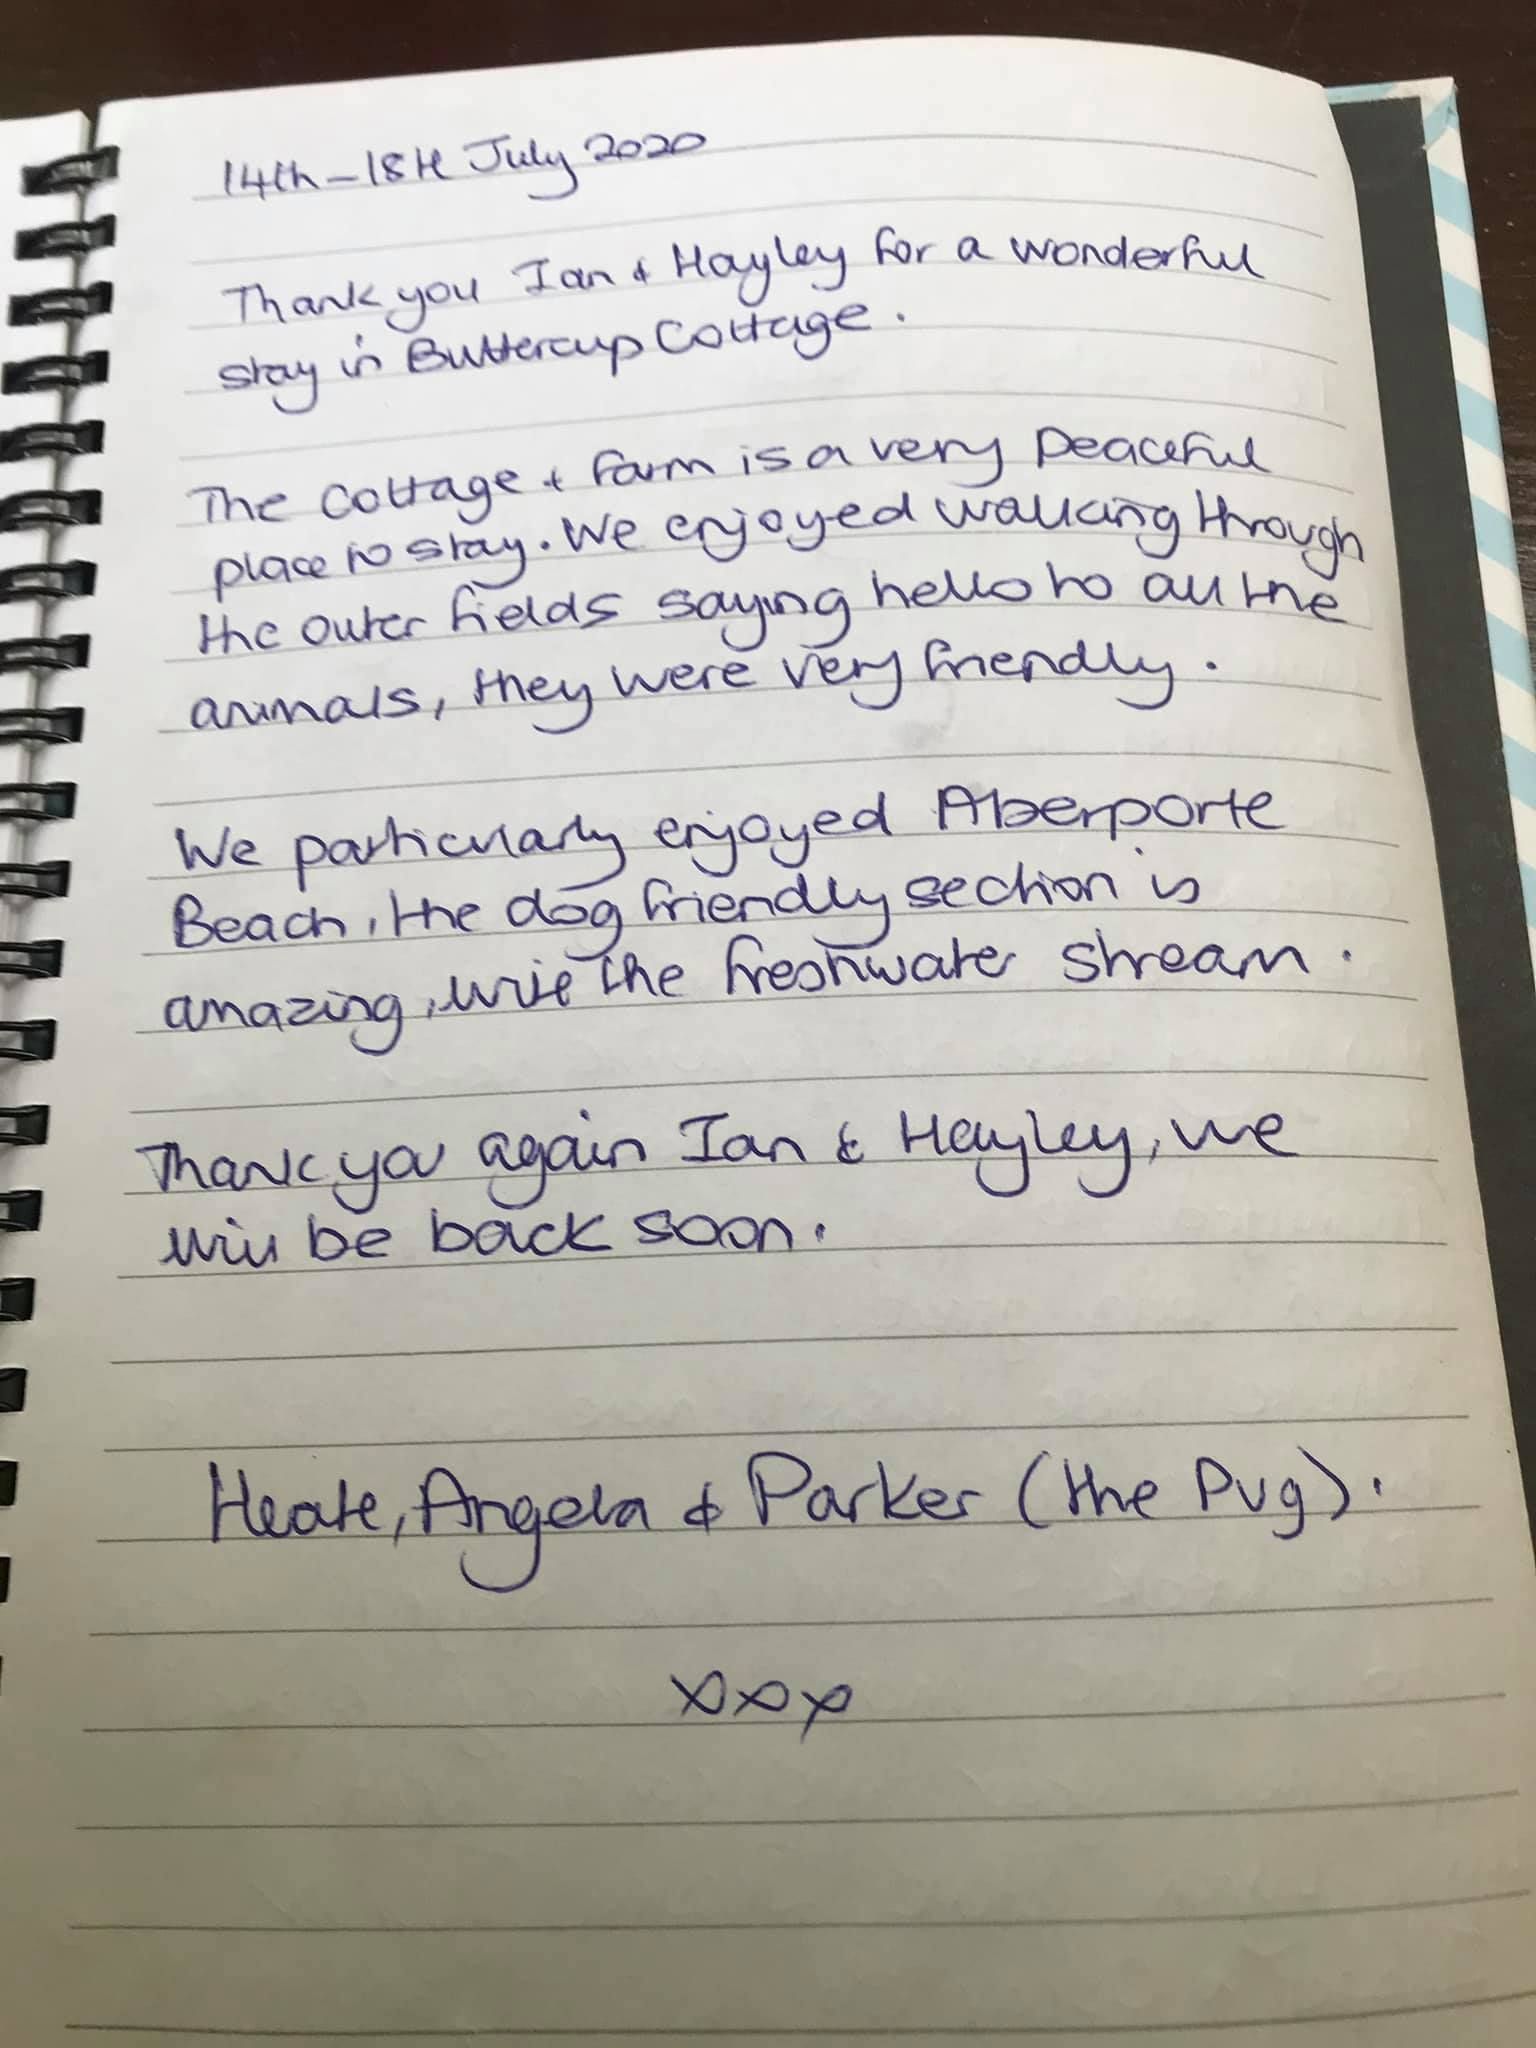 14th - 18th July 2020
Thank you Ian & Hayley for a wonderful
stay in Buttercup Cottage.
The cottage & farm is a very peaceful
place to stay. We enjoyed walking through
the outer fields saying hello to all the
animals, they were very friendly.
We particularly enjoyed Aberporte
Beach, the dog friendly section is
amazing, with the freshwater stream.
Thank you again Ian & Hayley, we
will be back soon.
Angela & Parker (the Pug).
xxx